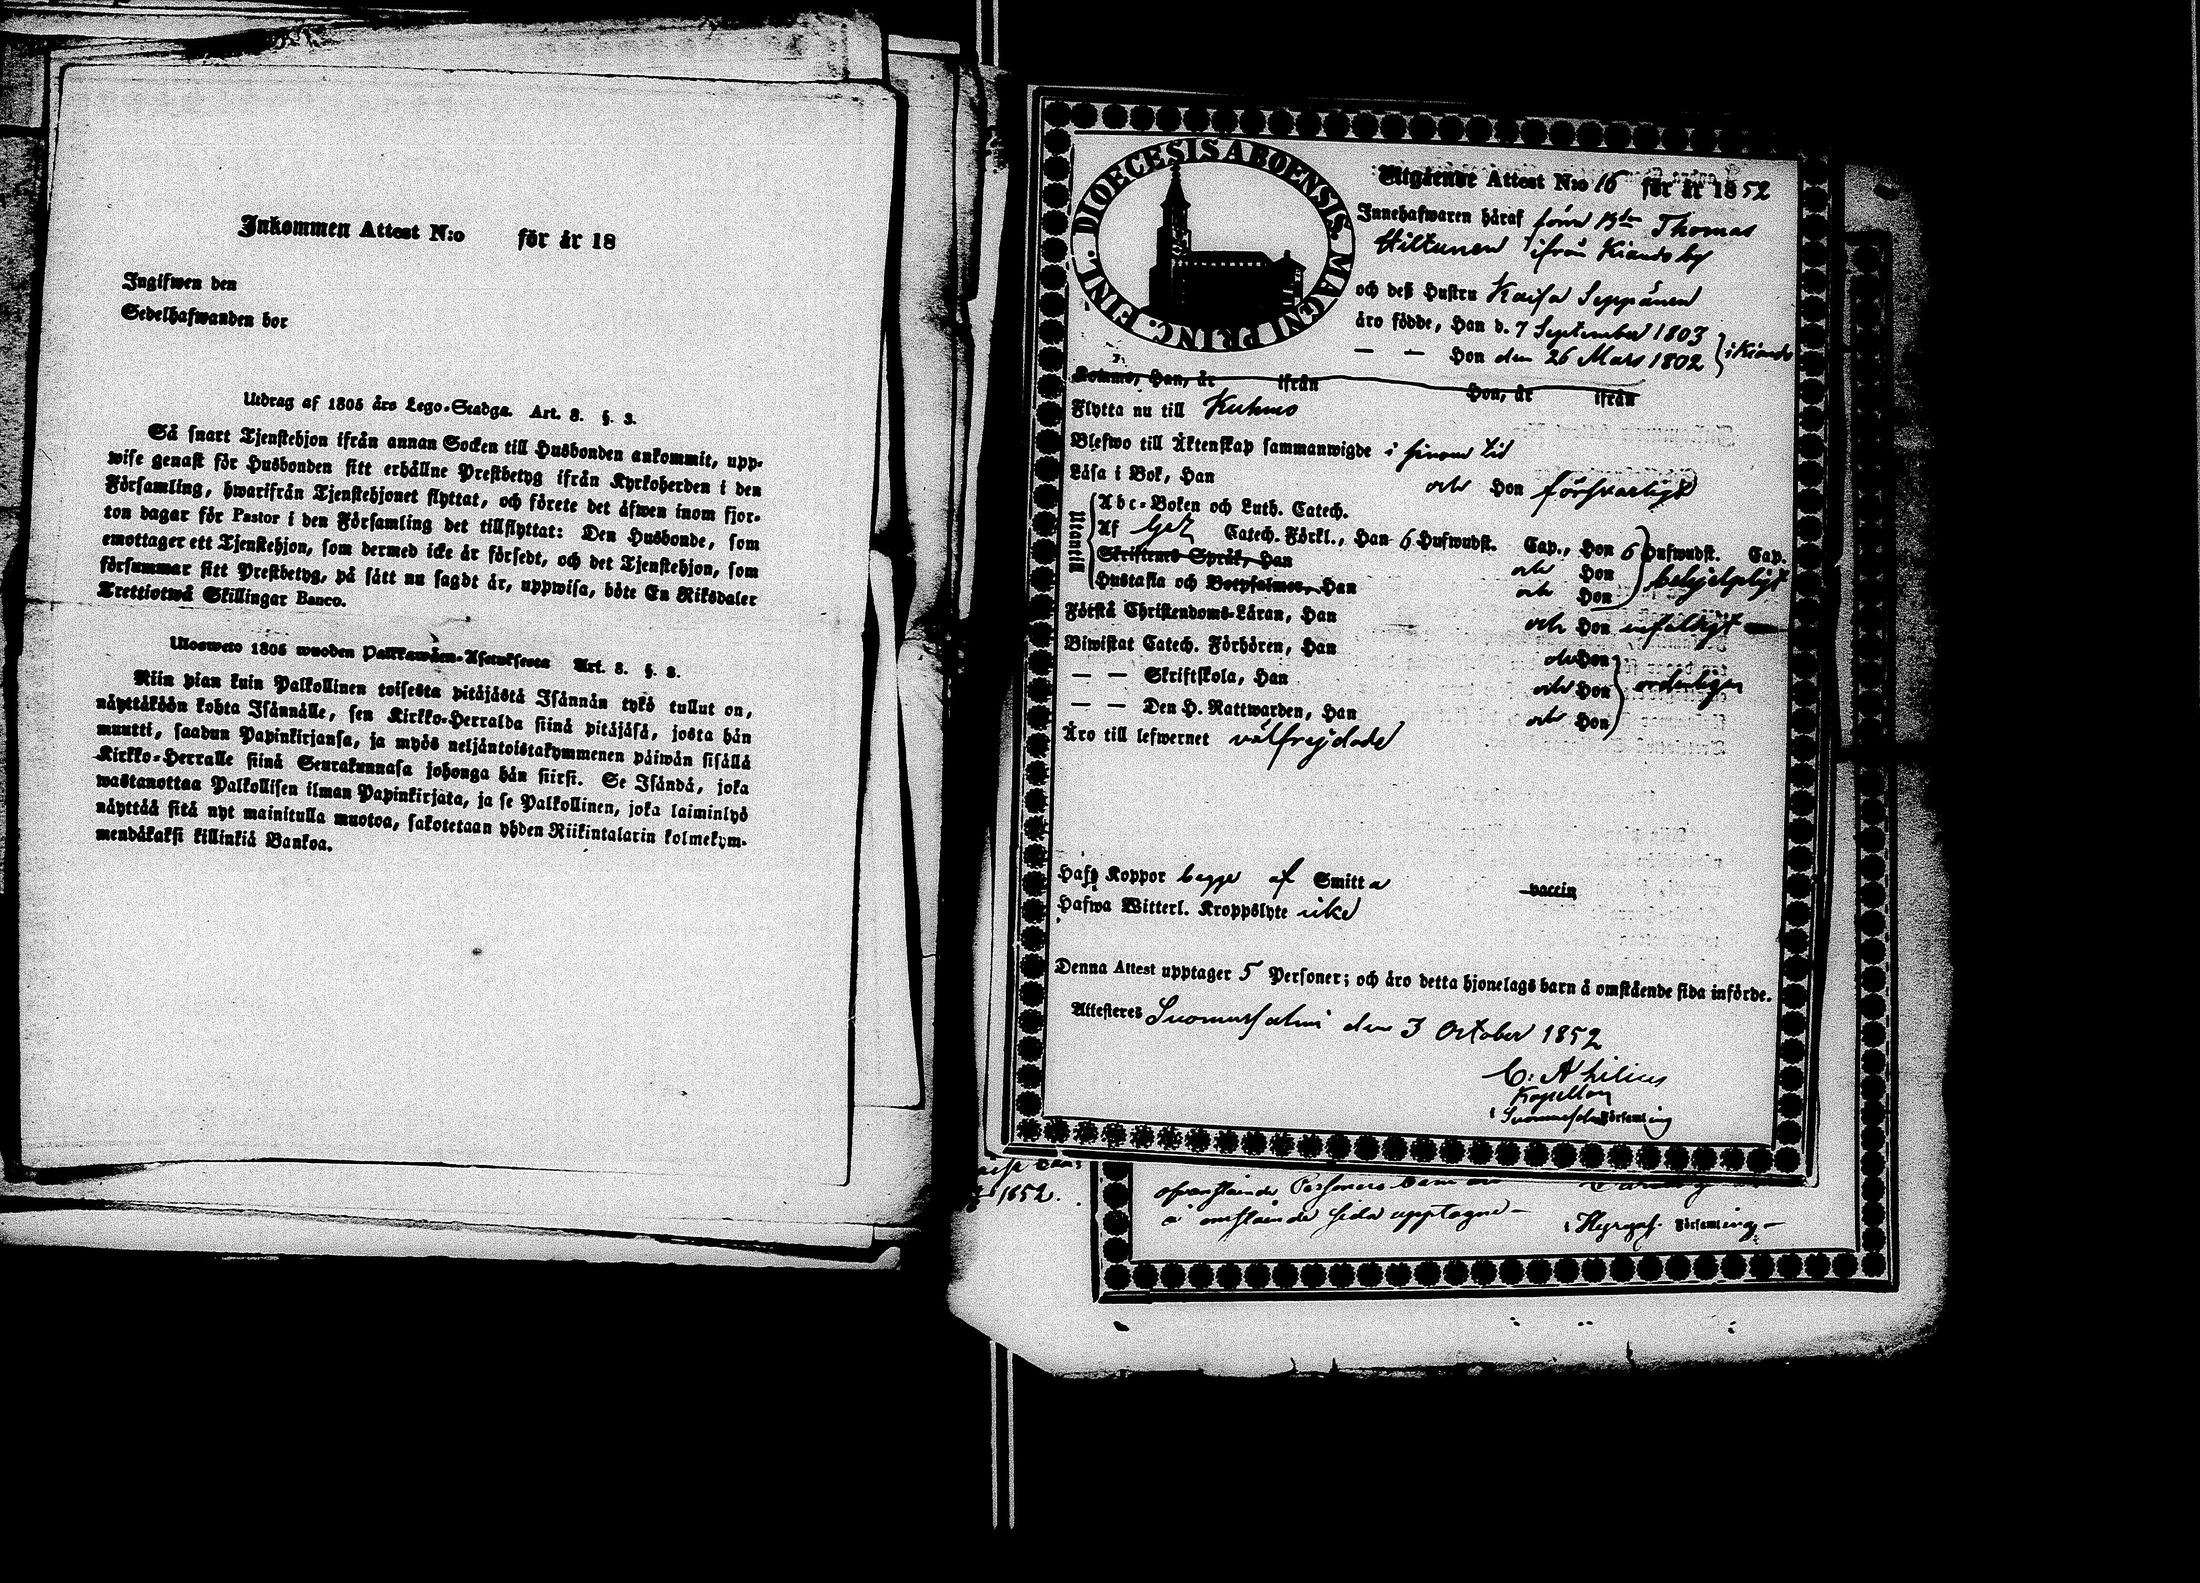 Inkommen Attest N:o för år 18
Ingifwen den
Sedelhafwanden bor
Utdrag af 1805 års Lego-Stadga. Art. 8. §. 3.
Så snart Tjenstehjon ifrån annan Socken till Husbonden ankommit, upp-
wise genast för Husbonden sitt erhållne Prestbetyg ifrån Kyrkoherden i den
Församling, hwarifrån Tjenstehjonet flyttat, och förete det äfwen inom fjor-
ton dagar för Pastor i den Församling det tillflyttat: Den Husbonde, som
emottager ett Tjenstehjon, som dermed icke är försedt, och det Tjenstehjon, som
försummar sitt Prestbetyg, på sätt nu sagdt är, uppwisa, böte En Riksdaler
Trettiotwå Skillingar Banco.
Ulosweto 1805 wuoden Palkkawäen-Asetuksesta Art. 8. §. 3.
Niin pian kuin Palkollinen toisesta pitäjästä Isännän tykö tullut on,
näyttäköön kohta Isännälle, sen Kirkko-Herralda siinä pitäjäsä, josta hän
muutti, saadun Papinkirjansa, ja myös neljäntoistakymmenen päiwän sisällä
Kirkko-Herralle siinä Seurakunnasa johonga hän siirsi. Se Isändä, joka
wastanottaa Palkollisen ilman Papinkirjata, ja se Palkollinen, joka laiminlyö
näyttää sitä nyt mainitulla muotoa, sakotetaan yhden Riikintalarin kolmekym-
mendäkaksi killinkiä Bankoa.
DIOECESIS ABOENSIS. MAGNI PRINC. FINL.
Utgående Attest N:o 16 för år 1852
Innehafwaren häraf förra Bdn Thomas
Hiltunen ifrån Kianda by
och deß Hustru Kaisa Seppänen
äro födde, Han d. 7 September 1803
— — Hon den 26 Mars 1802 } i Kianda
Komme, Han, år ifrån Hon, år ifrån
Flytta nu till Kuhmo
Blefwo till Äktenskap sammanwigde i sinom tid
Läsa i Bok, Han och Hon försvarligt
Utantill
Abc-Boken och Luth. Catech.
Af Gez Catech. Förkl., Han 6 Hufwudst. Cap., Hon 6 Hufwudst. Cap.
Skriftenes Språk, Han och Hon behjelpligt
Hustafla och Botpsalmer, Han och Hon
Förstå Christendoms-Läran, Han och Hon enfaldigt
Biwistat Catech. Förhören, Han och Hon
— — Skriftskola, Han och Hon ordentligen
— — Den H. Nattwarden, Han och Hon
Äro till lefwernet välfrejdade
Haft Koppor begge af Smitta vaccin
Hafwa Witterl. Kroppslyte icke
Denna Attest upptager 5 Personer; och äro detta hjonelags barn å omstående sida införde.
Attesteres Suomussalmi den 3 October 1852
C: A
Kapellan
i Suomussalmi Församling
1852.
ofvanstående Personers barn
å omstående sida upptagne —
i Hyryns. Församling —